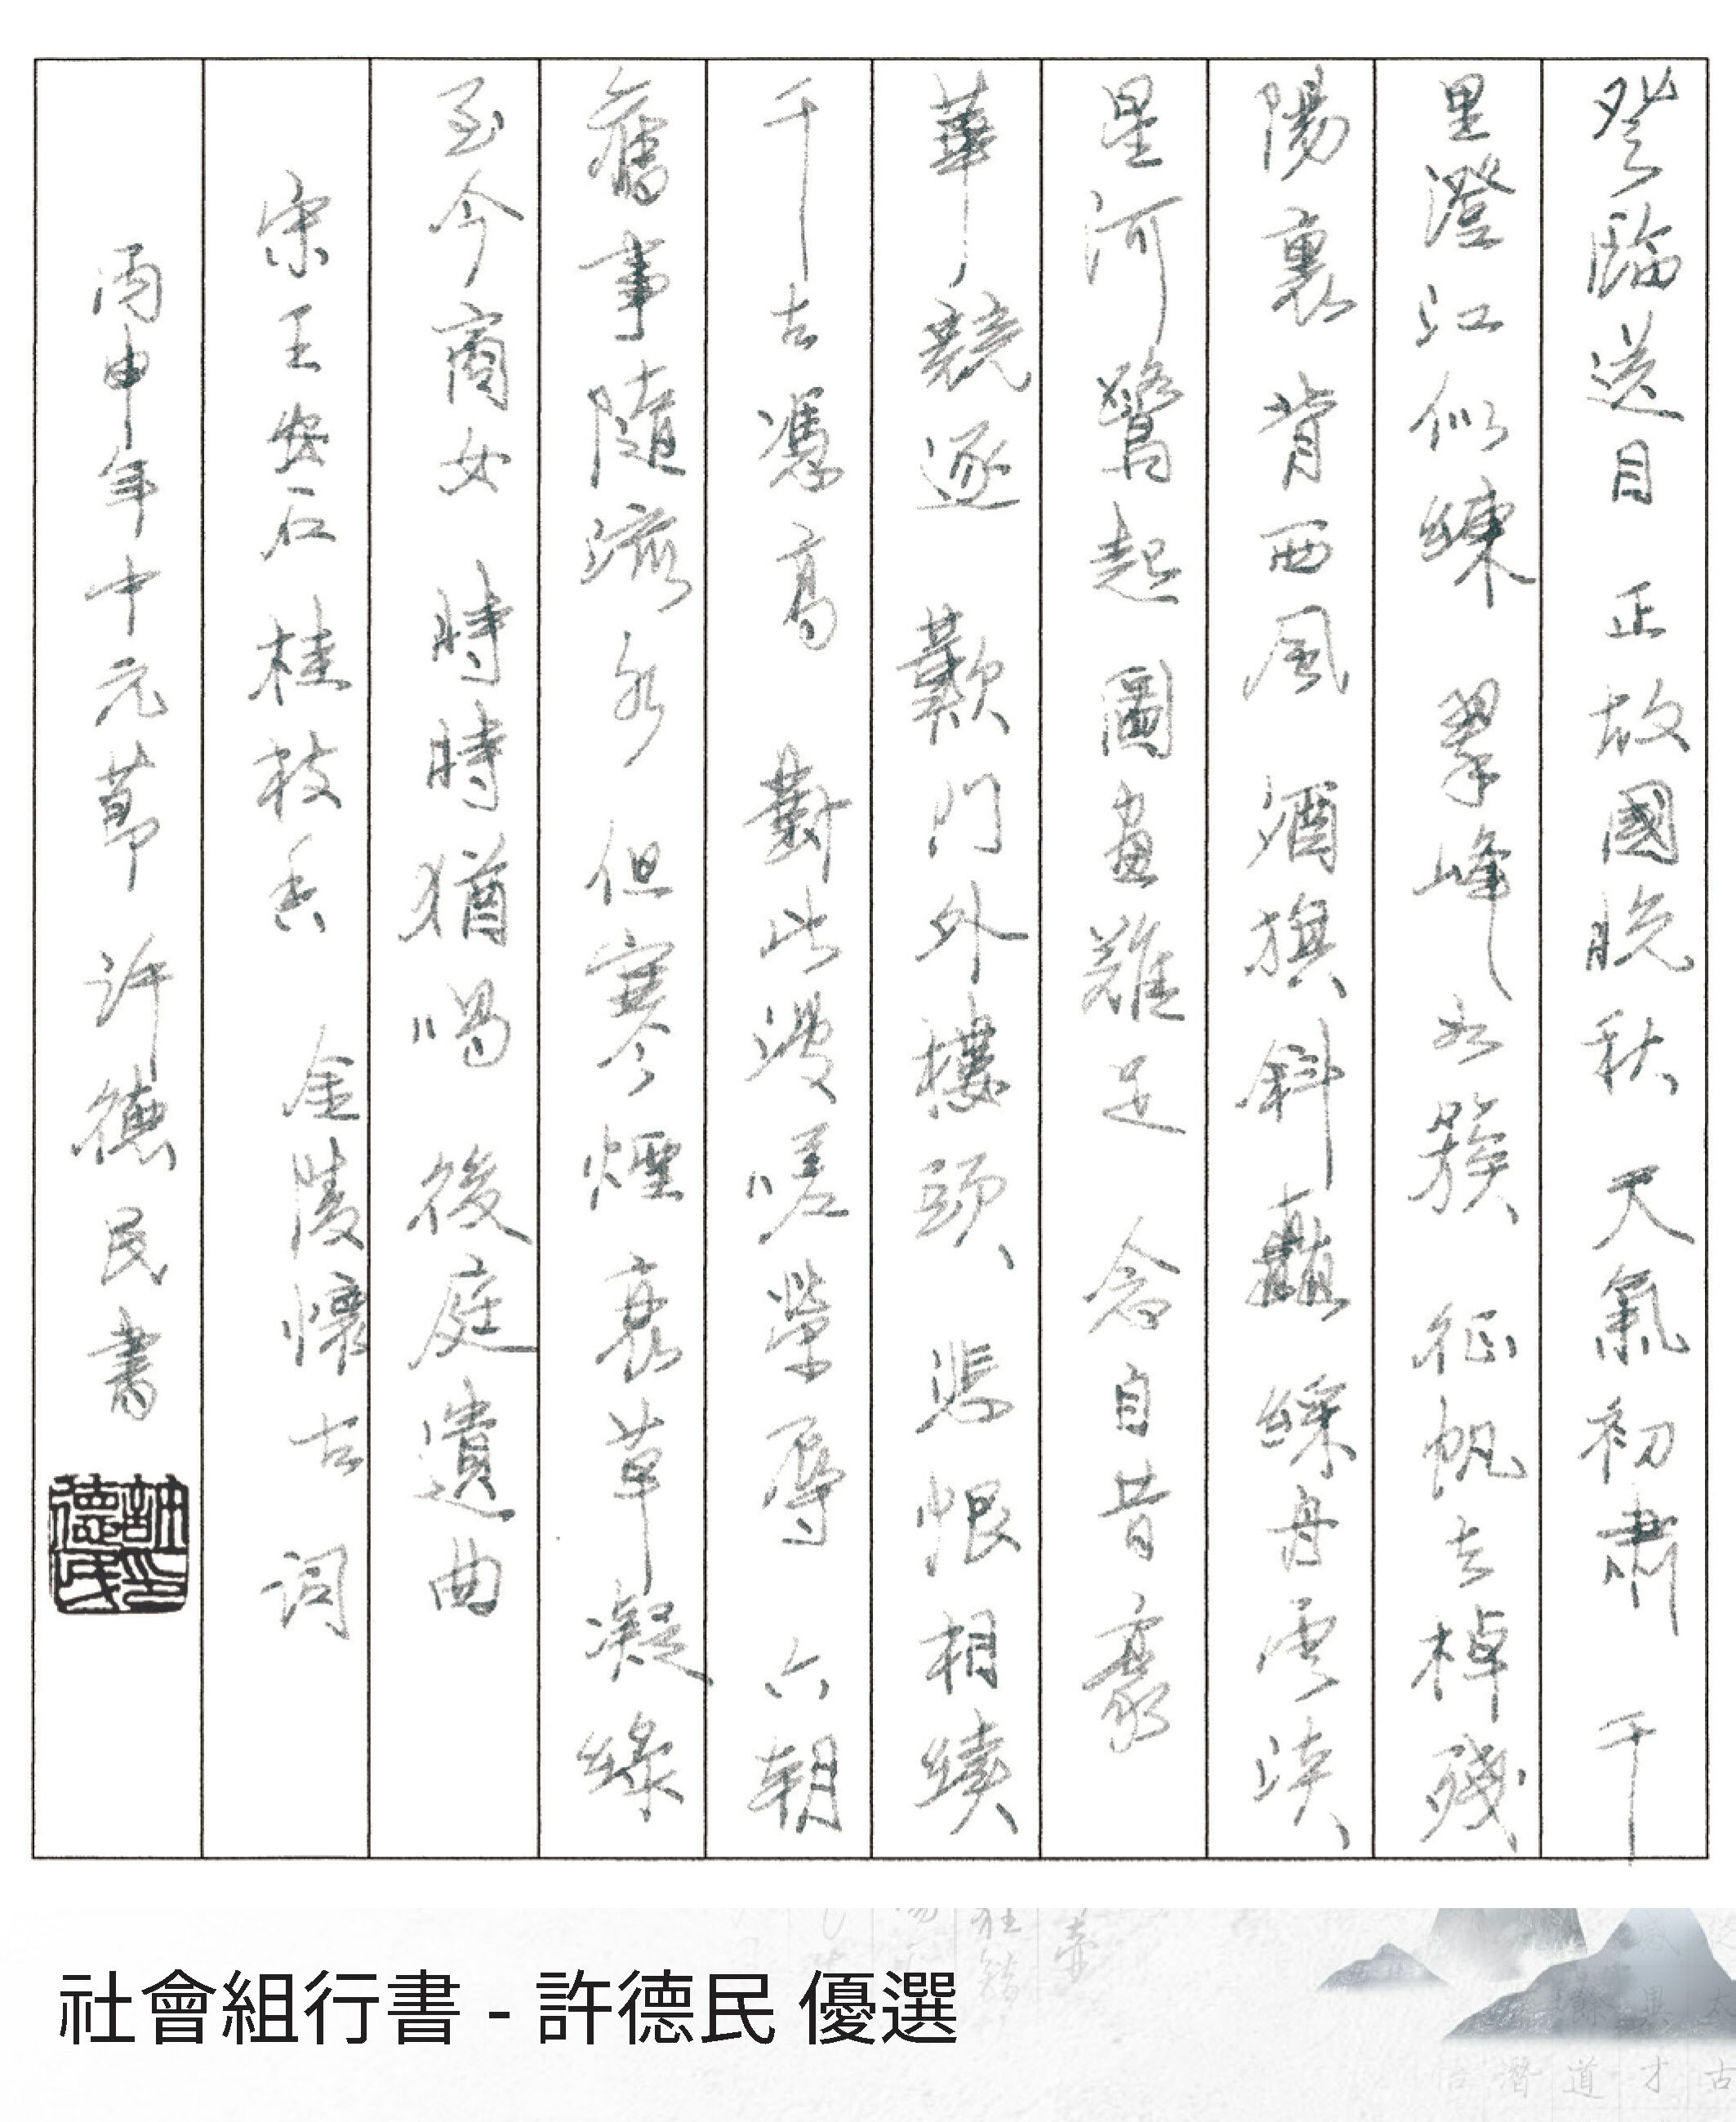 登臨送目 正故國晚秋 天氣初肅 千
里澄江似練 翠峰如簇 征帆去棹殘
陽裏 背西風 酒旗斜矗 綵舟雲淡
星河鷺起 圖畫難足 念自昔豪
華競逐 歎門外樓頭 悲恨相續
千古憑高 對此漫嗟榮辱 六朝
舊事隨流水 但寒煙衰草凝綠
至今商女 時時猶唱 後庭遺曲
宋王安石桂枝香 金陵懷古 詞
丙申年中元節 許德民書
許印德民
社會組行書 - 許德民 優選